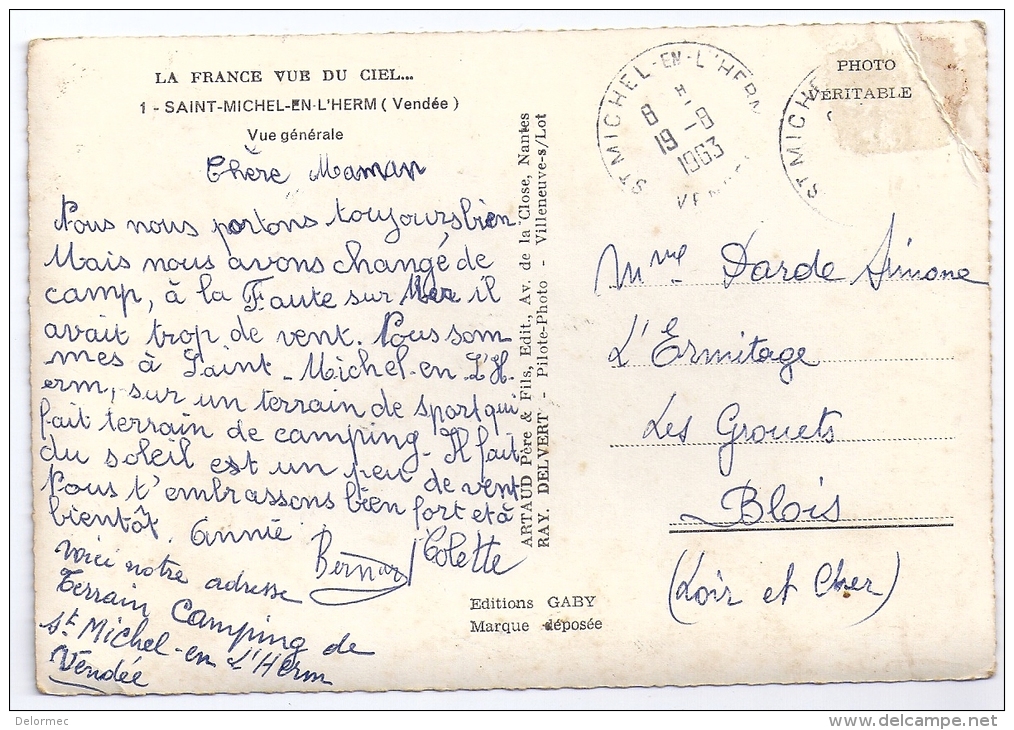 LA FRANCE VUE DU CIEL...
1 - SAINT-MICHEL-EN-L'HERM ( Vendée )
Vue générale
Chère Maman
Nous nous portons toujours bien
Mais nous avons changé de
camp, à la Faute sur Mer il
avait trop de vent. Nous som
mes à Saint-Michel-en L'H-
erm, sur un terrain de sport qui
fait terrain de camping - Il fait
du soleil est un peu de vent
Nous t'embrassons bien fort et à
bientôt. Annie
Bernard Colette
Voici notre adresse
Terrain Camping de
St Michel-en L'Herm
Vendée
ARTAUD Père & Fils, Edit., Av. de la Close, Nantes
RAY. DELVERT - Pilote-Photo - Villeneuve-s/Lot
Editions GABY
Marque déposée
ST MICHEL-EN-L'HERM
8 H
19 -8
1963
ST MICHE
PHOTO
VÉRITABLE
Mme Darde Simone
L'Ermitage
Les Grouets
Blois
(Loir et Cher)
Delormec
delcampe.net